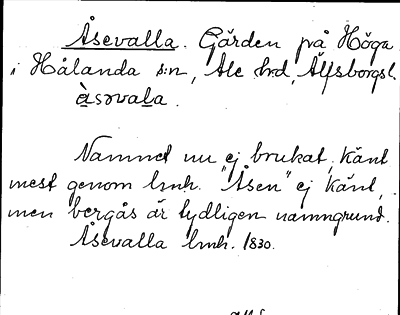 Åsevalla. Gården på Höga
i Hålanda s:n, Ale hrd, Älfsborgs l.
àsəvala.
Namnet nu ej brukat, känt
mest genom lmh. "Åsen" ej känt,
men bergås är tydligen namngrund.
Åsevalla lmh. 1830.